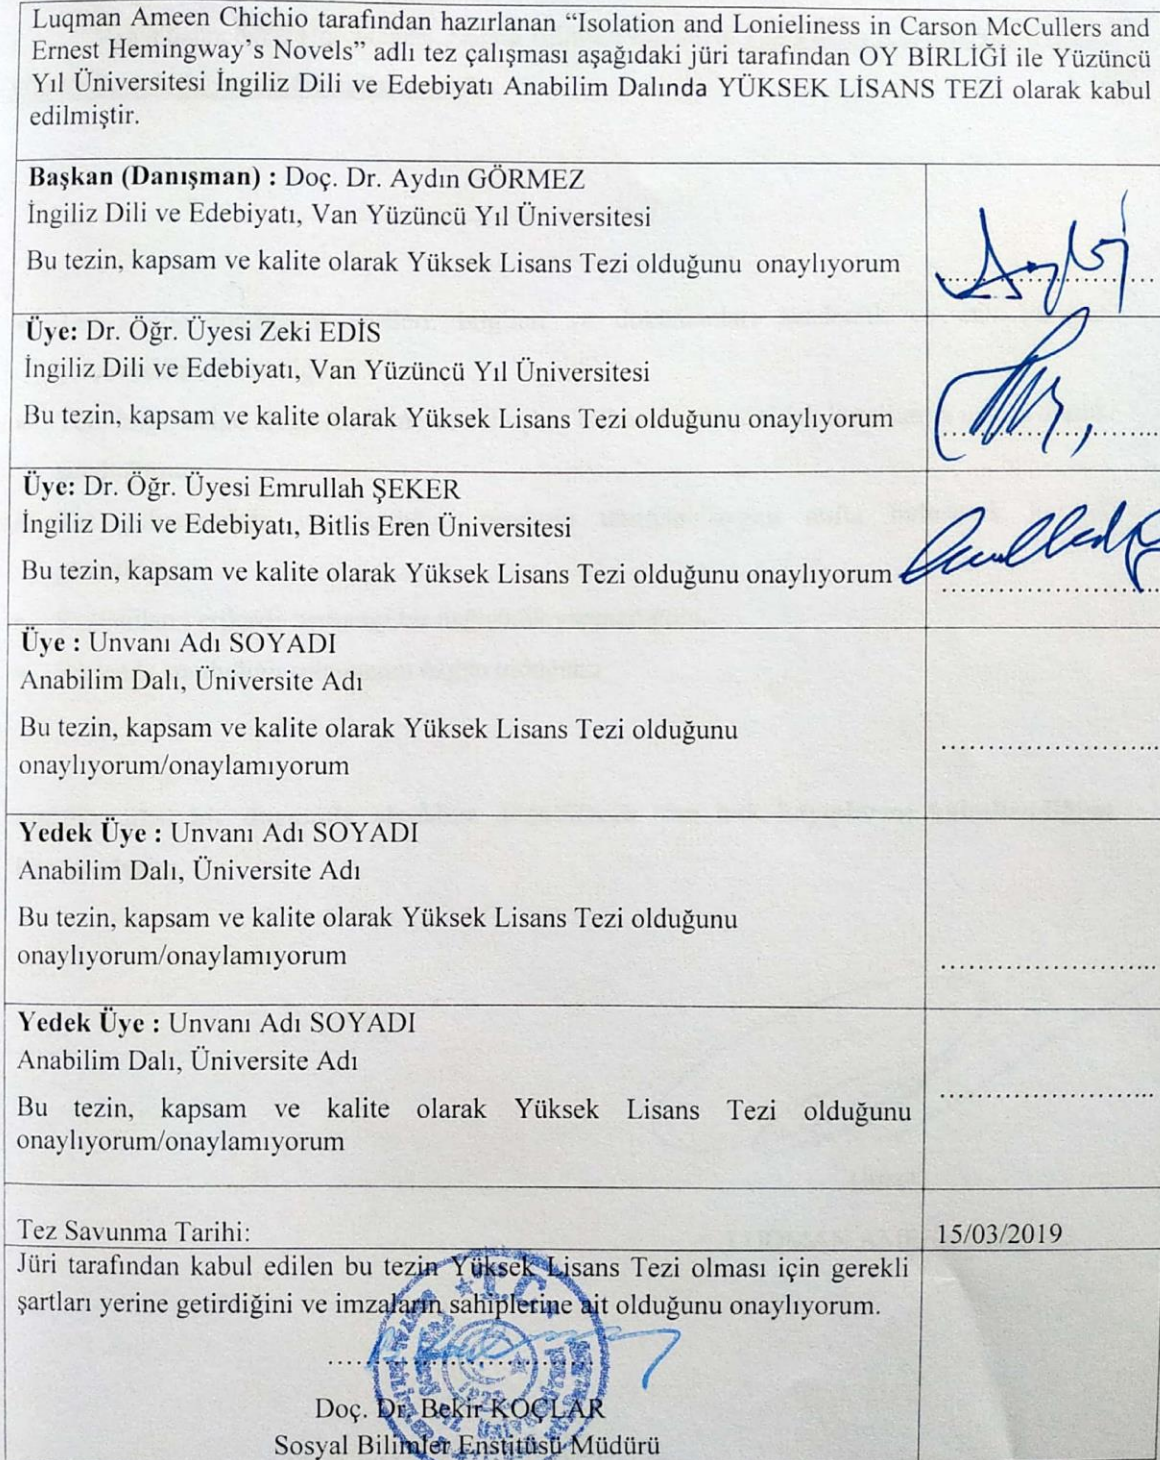 Luqman Ameen Chichio tarafından hazırlanan “Isolation and Lonieliness in Carson McCullers and
Ernest Hemingway’s Novels” adlı tez çalışması aşağıdaki jüri tarafından OY BİRLİĞİ ile Yüzüncü
Yıl Üniversitesi İngiliz Dili ve Edebiyatı Anabilim Dalında YÜKSEK LİSANS TEZİ olarak kabul
edilmiştir.
Başkan (Danışman) : Doç. Dr. Aydın GÖRMEZ
İngiliz Dili ve Edebiyatı, Van Yüzüncü Yıl Üniversitesi
Bu tezin, kapsam ve kalite olarak Yüksek Lisans Tezi olduğunu onaylıyorum
Üye: Dr. Öğr. Üyesi Zeki EDİS
İngiliz Dili ve Edebiyatı, Van Yüzüncü Yıl Üniversitesi
Bu tezin, kapsam ve kalite olarak Yüksek Lisans Tezi olduğunu onaylıyorum
Üye: Dr. Öğr. Üyesi Emrullah ŞEKER
İngiliz Dili ve Edebiyatı, Bitlis Eren Üniversitesi
Bu tezin, kapsam ve kalite olarak Yüksek Lisans Tezi olduğunu onaylıyorum
Üye : Unvanı Adı SOYADI
Anabilim Dalı, Üniversite Adı
Bu tezin, kapsam ve kalite olarak Yüksek Lisans Tezi olduğunu
onaylıyorum/onaylamıyorum
Yedek Üye : Unvanı Adı SOYADI
Anabilim Dalı, Üniversite Adı
Bu tezin, kapsam ve kalite olarak Yüksek Lisans Tezi olduğunu
onaylıyorum/onaylamıyorum
Yedek Üye : Unvanı Adı SOYADI
Anabilim Dalı, Üniversite Adı
Bu tezin, kapsam ve kalite olarak Yüksek Lisans Tezi olduğunu
onaylıyorum/onaylamıyorum
Tez Savunma Tarihi: 15/03/2019
Jüri tarafından kabul edilen bu tezin Yüksek Lisans Tezi olması için gerekli
şartları yerine getirdiğini ve imzaların sahiplerine ait olduğunu onaylıyorum.
Doç. Dr. Bekir KOÇLAR
Sosyal Bilimler Enstitüsü Müdürü